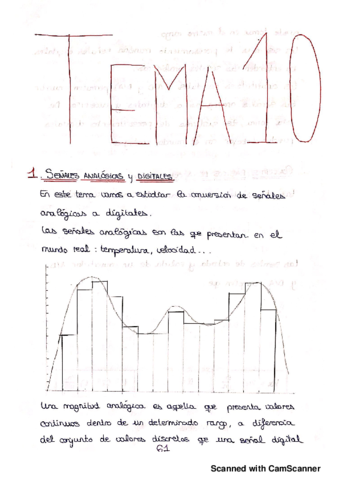 TEMA 10
1. SEÑALES ANALÓGICAS y DIGITALES
En este tema vamos a estudiar la conversión de señales
analógicas a digitales.
Las señales analógicas son las que presentan en el
mundo real: temperatura, velocidad...
Una magnitud analógica es aquella que presenta valores
continuos dentro de un determinado rango, a diferencia
del conjunto de valores discretos que una señal digital
61
Scanned with CamScanner